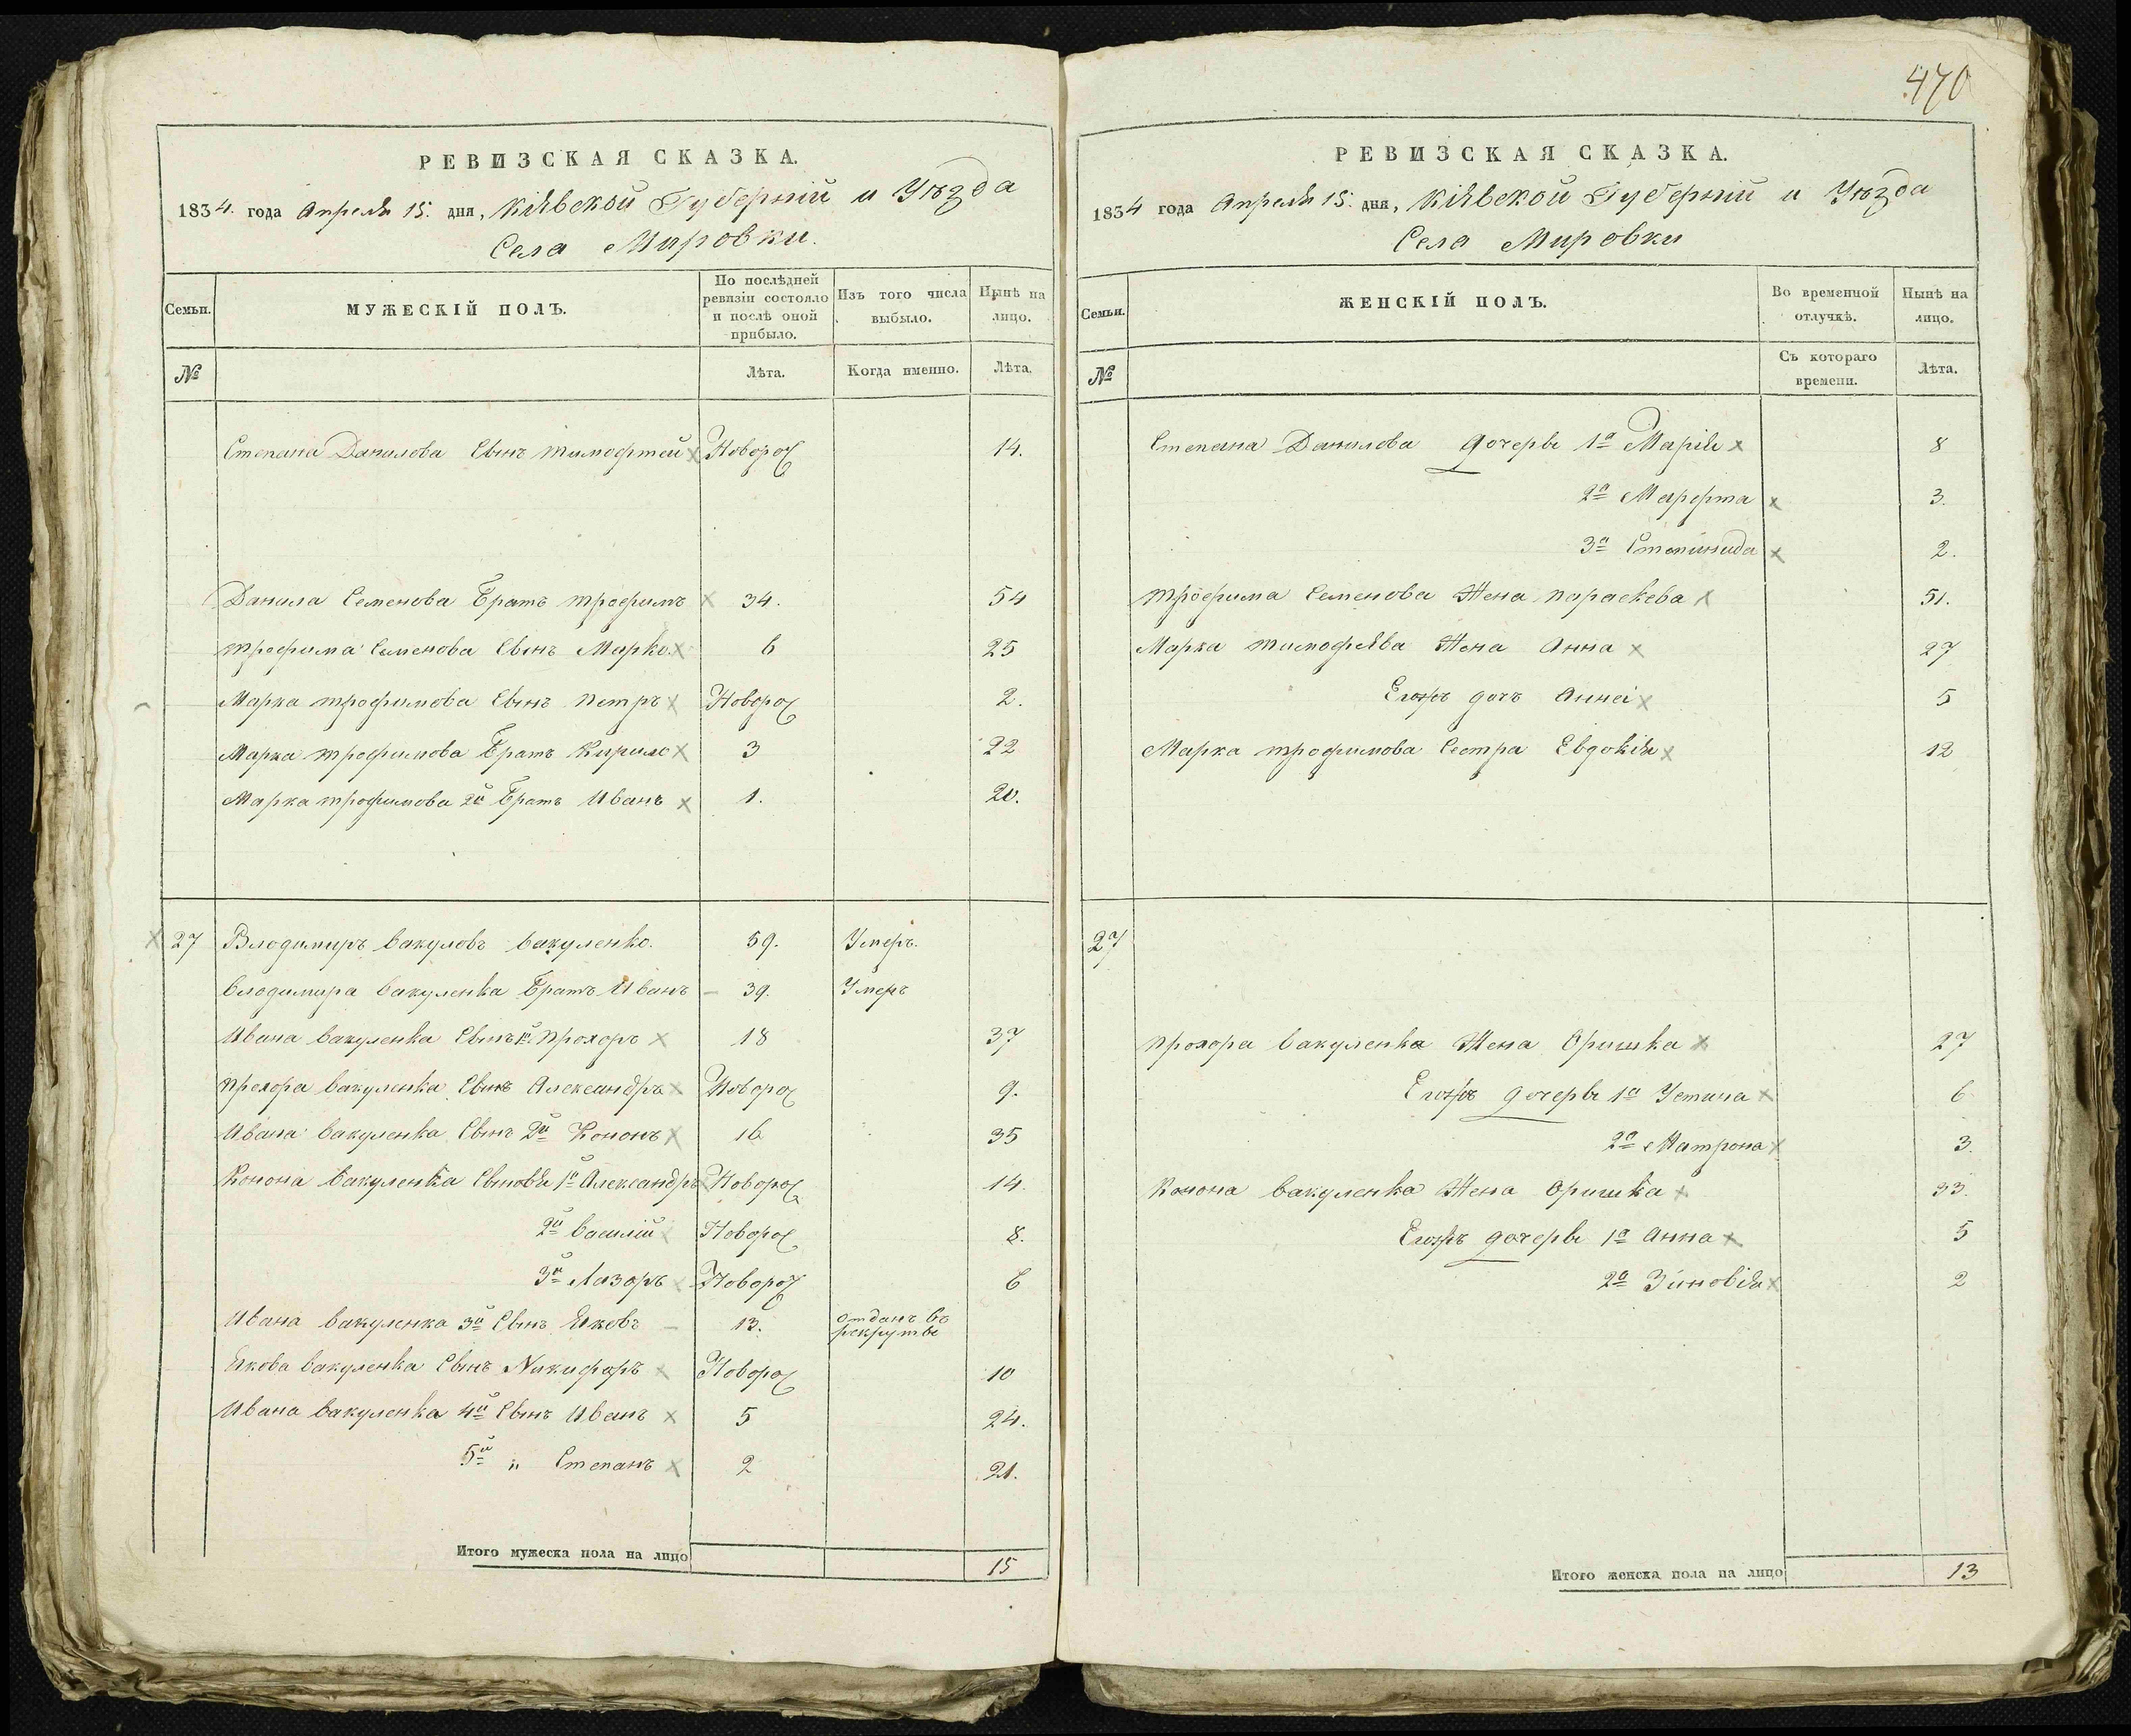 РЕВИЗСКАЯ СКАЗКА.
1834. года Апреля 15. дня, Кіявской Губерній и Уѣзда
Села Мировки.
Семьи. МУЖЕСКІЙ ПОЛЪ. По послѣдней ревизіи состояло и послѣ оной прибыло. Изъ того числа выбыло. Нынѣ на лицо.
№ Лѣта. Когда именно. Лѣта.
Степана Данилова Сынъ тимофтей Новорож 14.
Данила Семенова Братъ трофимъ 34. 54
трофима Семенова Сынъ Марко 6 25
Марка трофимова Сынъ петръ Новорож 2.
Марка трофимова Братъ Кирило 3 22
Марка трофимова 2й Братъ Иванъ 1. 20.
27 Влодимиръ вакуловъ вакуленко. 59. Умеръ.
влодимира вакуленка Братъ Иванъ 39. Умеръ
Ивана вакуленка Сынъ 1й прохоръ 18 37
прохора вакуленка Сынъ Александръ Новорож 9.
Ивана вакуленка Сынъ 2й Кононъ 16 35
Конона вакуленка Сыновя 1й Александръ Новорож 14.
2й василій Новорож 8.
3й Лазоръ Новорож 6
Ивана вакуленка 3й Сынъ Яковъ 13. отданъ въ рекруты
Якова вакуленка Сынъ Никифоръ Новорож 10
Ивана вакуленка 4й Сынъ Иванъ 5 24.
5й „ Степанъ 2 21.
Итого мужеска пола на лицо 15
470
РЕВИЗСКАЯ СКАЗКА.
1834 года Апреля 15. дня, Кіявской Губерній и Уѣзда
Села Мировки
Семьи. ЖЕНСКІЙ ПОЛЪ. Во временной отлучкѣ. Нынѣ на лицо.
№ Съ котораго времени. Лѣта.
Степана Данилова дочеры 1а Марія 8
2а Марфта 3.
3а Степанида 2.
трофима Семенова Жена параскева 51.
Марка тимофѣява Жена Анна 27
Егожъ дочъ Анна 5
Марка трофимова Сестра Евдокія 12
27
прохора вакуленка Жена Оришка 27
Егожъ дочеры 1а Устина 6
2а Матрона 3.
Конона вакуленка Жена Оришка 33.
Егожъ дочеры 1а Анна 5
2а Зиновія 2
Итого женска пола на лицо 13